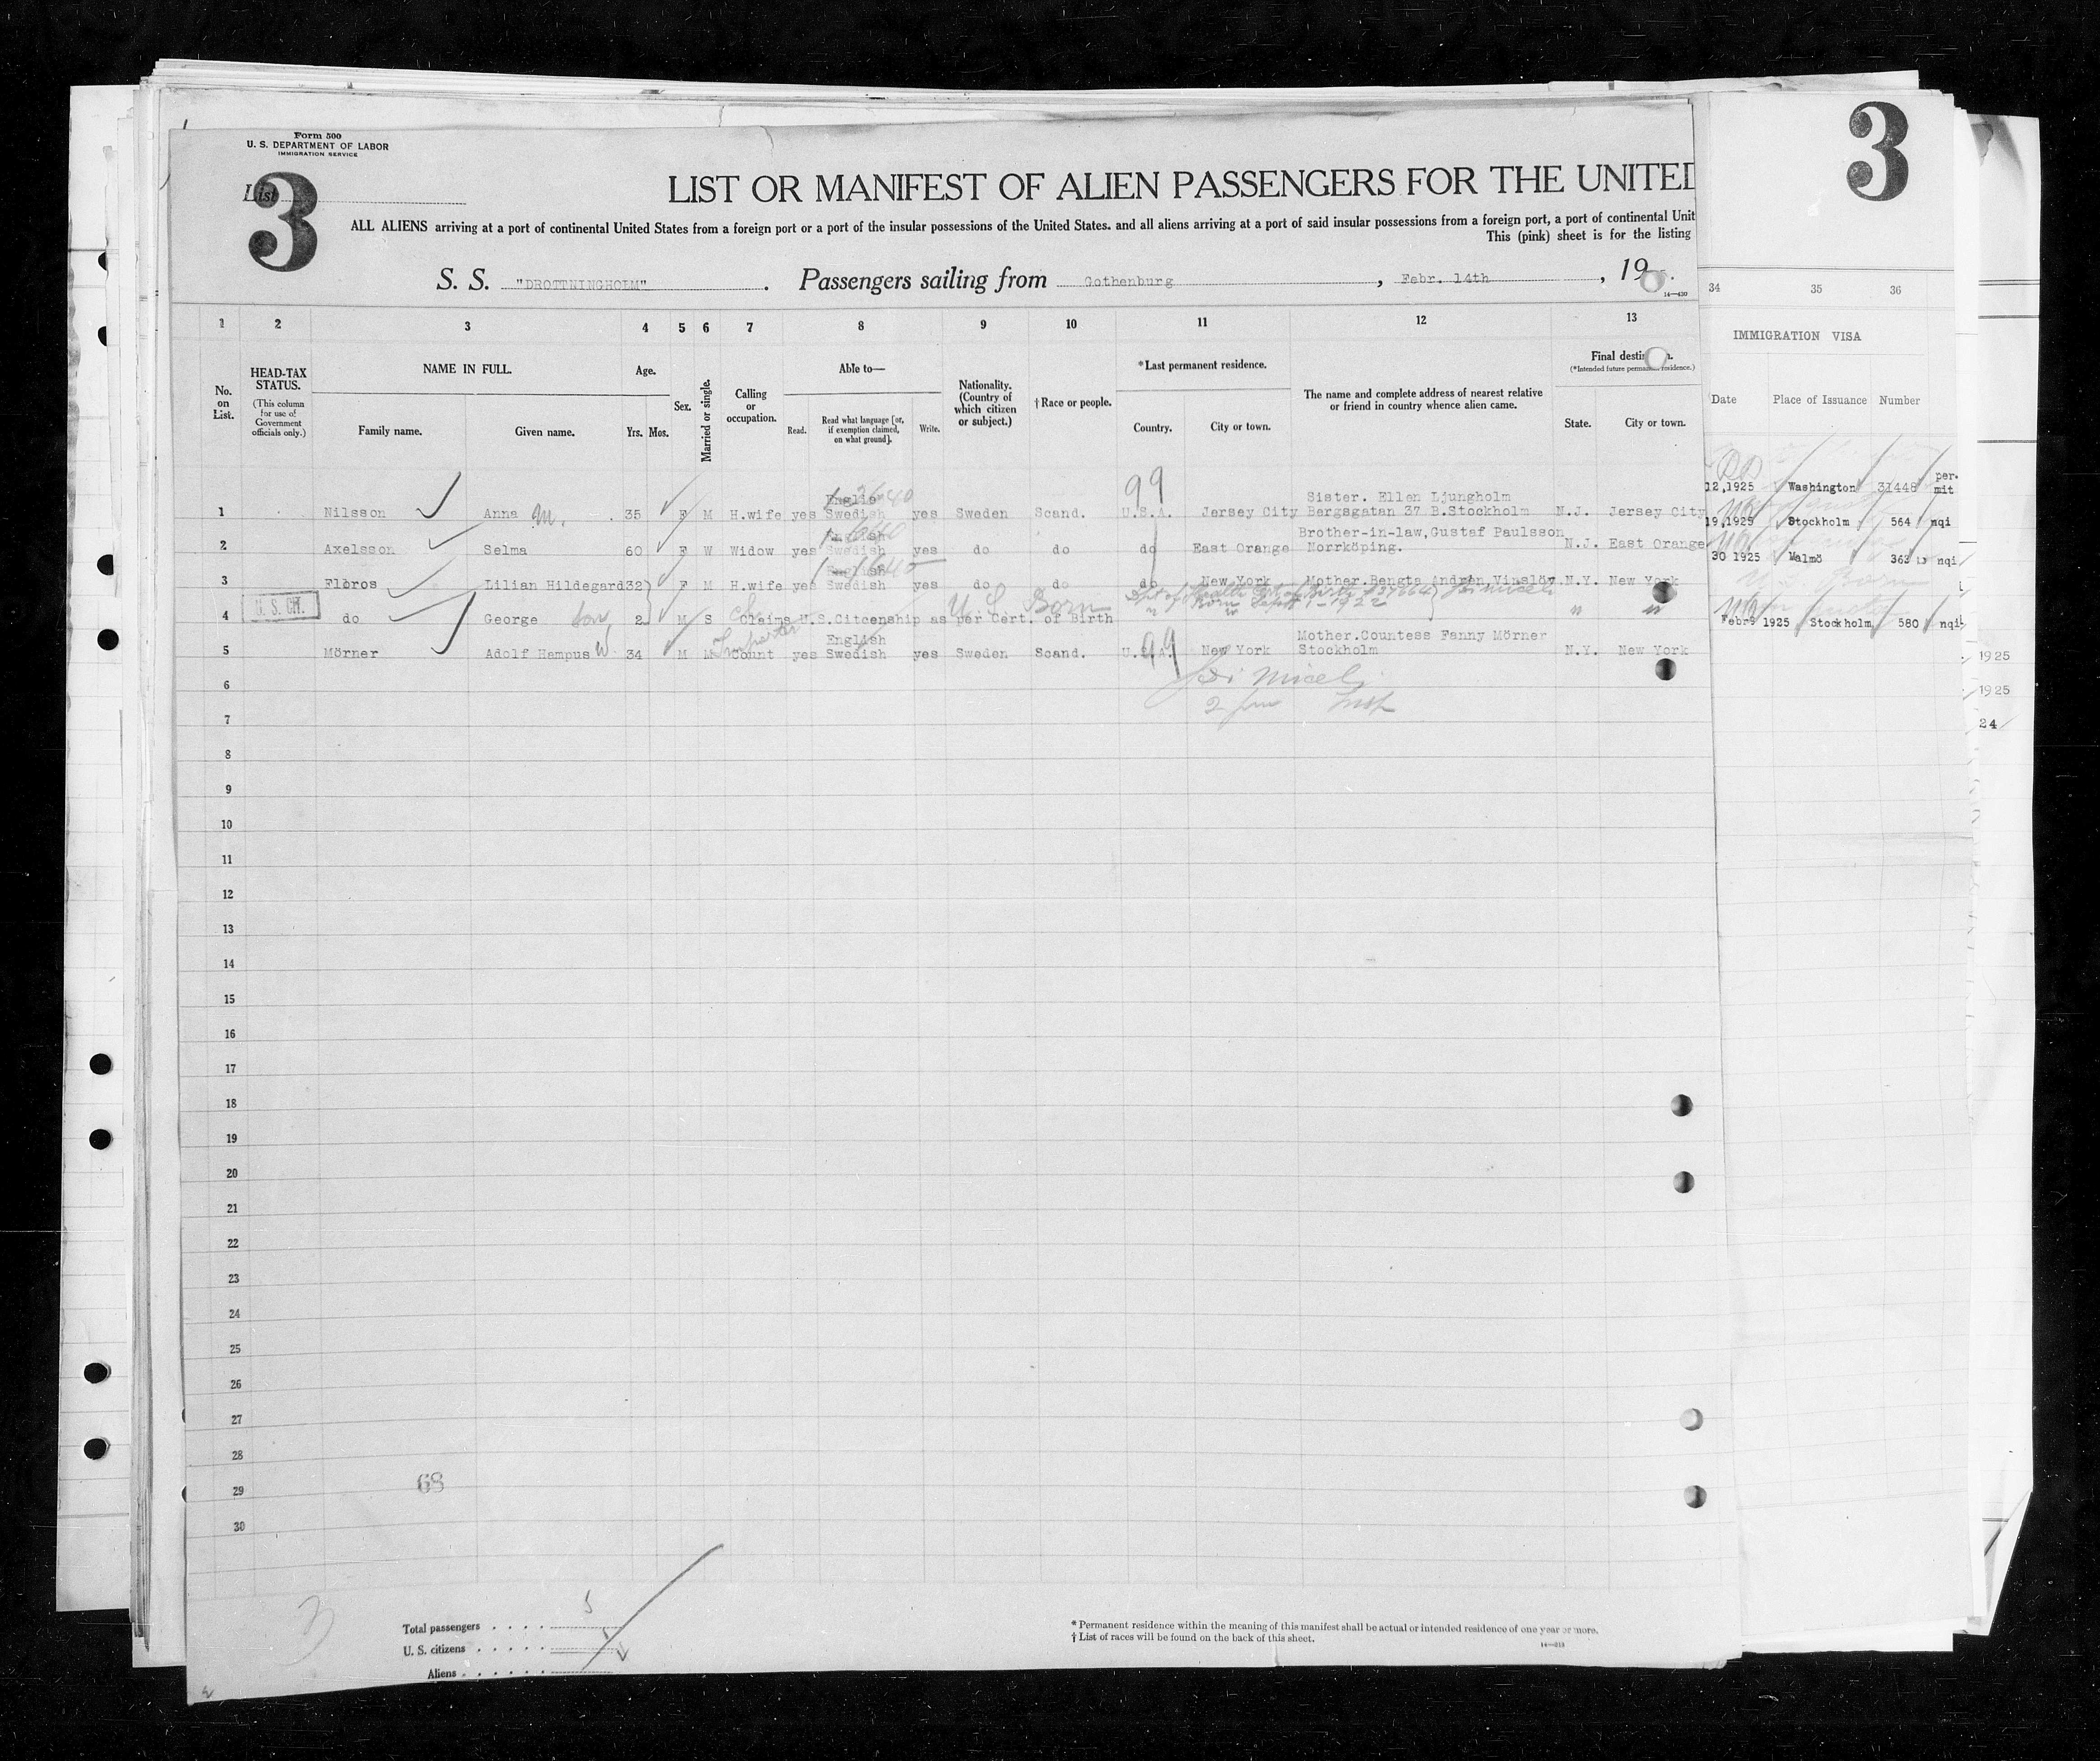 Form 500
U. S. DEPARTMENT OF LABOR
IMMIGRATION SERVICE
List
3
3
LIST OR MANIFEST OF ALIEN PASSENGERS FOR THE UNITED
ALL ALIENS arriving at a port of continental United States from a foreign port or a port of the insular possessions of the United States, and all aliens arriving at a port of said insular possessions from a foreign port, a port of continental Unit
This (pink) sheet is for the listing
S. S. "DROTTNINGHOLM". Passengers sailing from Gothenburg, Febr. 14th, 19
14—430
1 2 3 4 5 6 7 8 9 10 11 12 13 34 35 36
No. on List.
HEAD-TAX STATUS.
(This column for use of Government officials only.)
NAME IN FULL.
Family name. Given name.
Age.
Yrs. Mos.
Sex.
Married or single.
Calling or occupation.
Able to—
Read. Read what language [or, if exemption claimed, on what ground]. Write.
Nationality. (Country of which citizen or subject.)
† Race or people.
*Last permanent residence.
Country. City or town.
The name and complete address of nearest relative or friend in country whence alien came.
Final destin
(*Intended future perma residence.)
State. City or town.
IMMIGRATION VISA
Date Place of Issuance Number
1 Nilsson Anna M. 35 F M H.wife yes English Swedish yes Sweden Scand. U.S.A. 99 Jersey City Sister. Ellen Ljungholm Bergsgatan 37 B.Stockholm N.J. Jersey City 12,1925 Washington 31448 per-mit
2 Axelsson Selma 60 F W Widow yes English Swedish yes do do do East Orange Brother-in-law,Gustaf Paulsson Norrköping. N.J. East Orange 19,1925 Stockholm 564 nqi
3 Floros Lilian Hildegard 32 F M H.wife yes English Swedish yes do do do New York Mother.Bengta Andrén,Vinslöv N.Y. New York 30 1925 Malmö 363 nqi
U. S. CIT.
4 do George Son 2 M S Claims U.S.Citcenship as per Cert. of Birth U S Born " "
Born Sept 1-1922
5 Mörner Adolf Hampus W 34 M M Importer Count yes English Swedish yes Sweden Scand. U.S.A. 99 New York Mother.Countess Fanny Mörner Stockholm N.Y. New York Febr 9 1925 Stockholm 580 nqi
Miceli
Insp
6
7
8
9
10
11
12
13
14
15
16
17
18
19
20
21
22
23
24
25
26
27
28
29
30
1925
1925
24
68
3
Total passengers 5
U. S. citizens 1
Aliens
* Permanent residence within the meaning of this manifest shall be actual or intended residence of one year or more.
† List of races will be found on the back of this sheet.